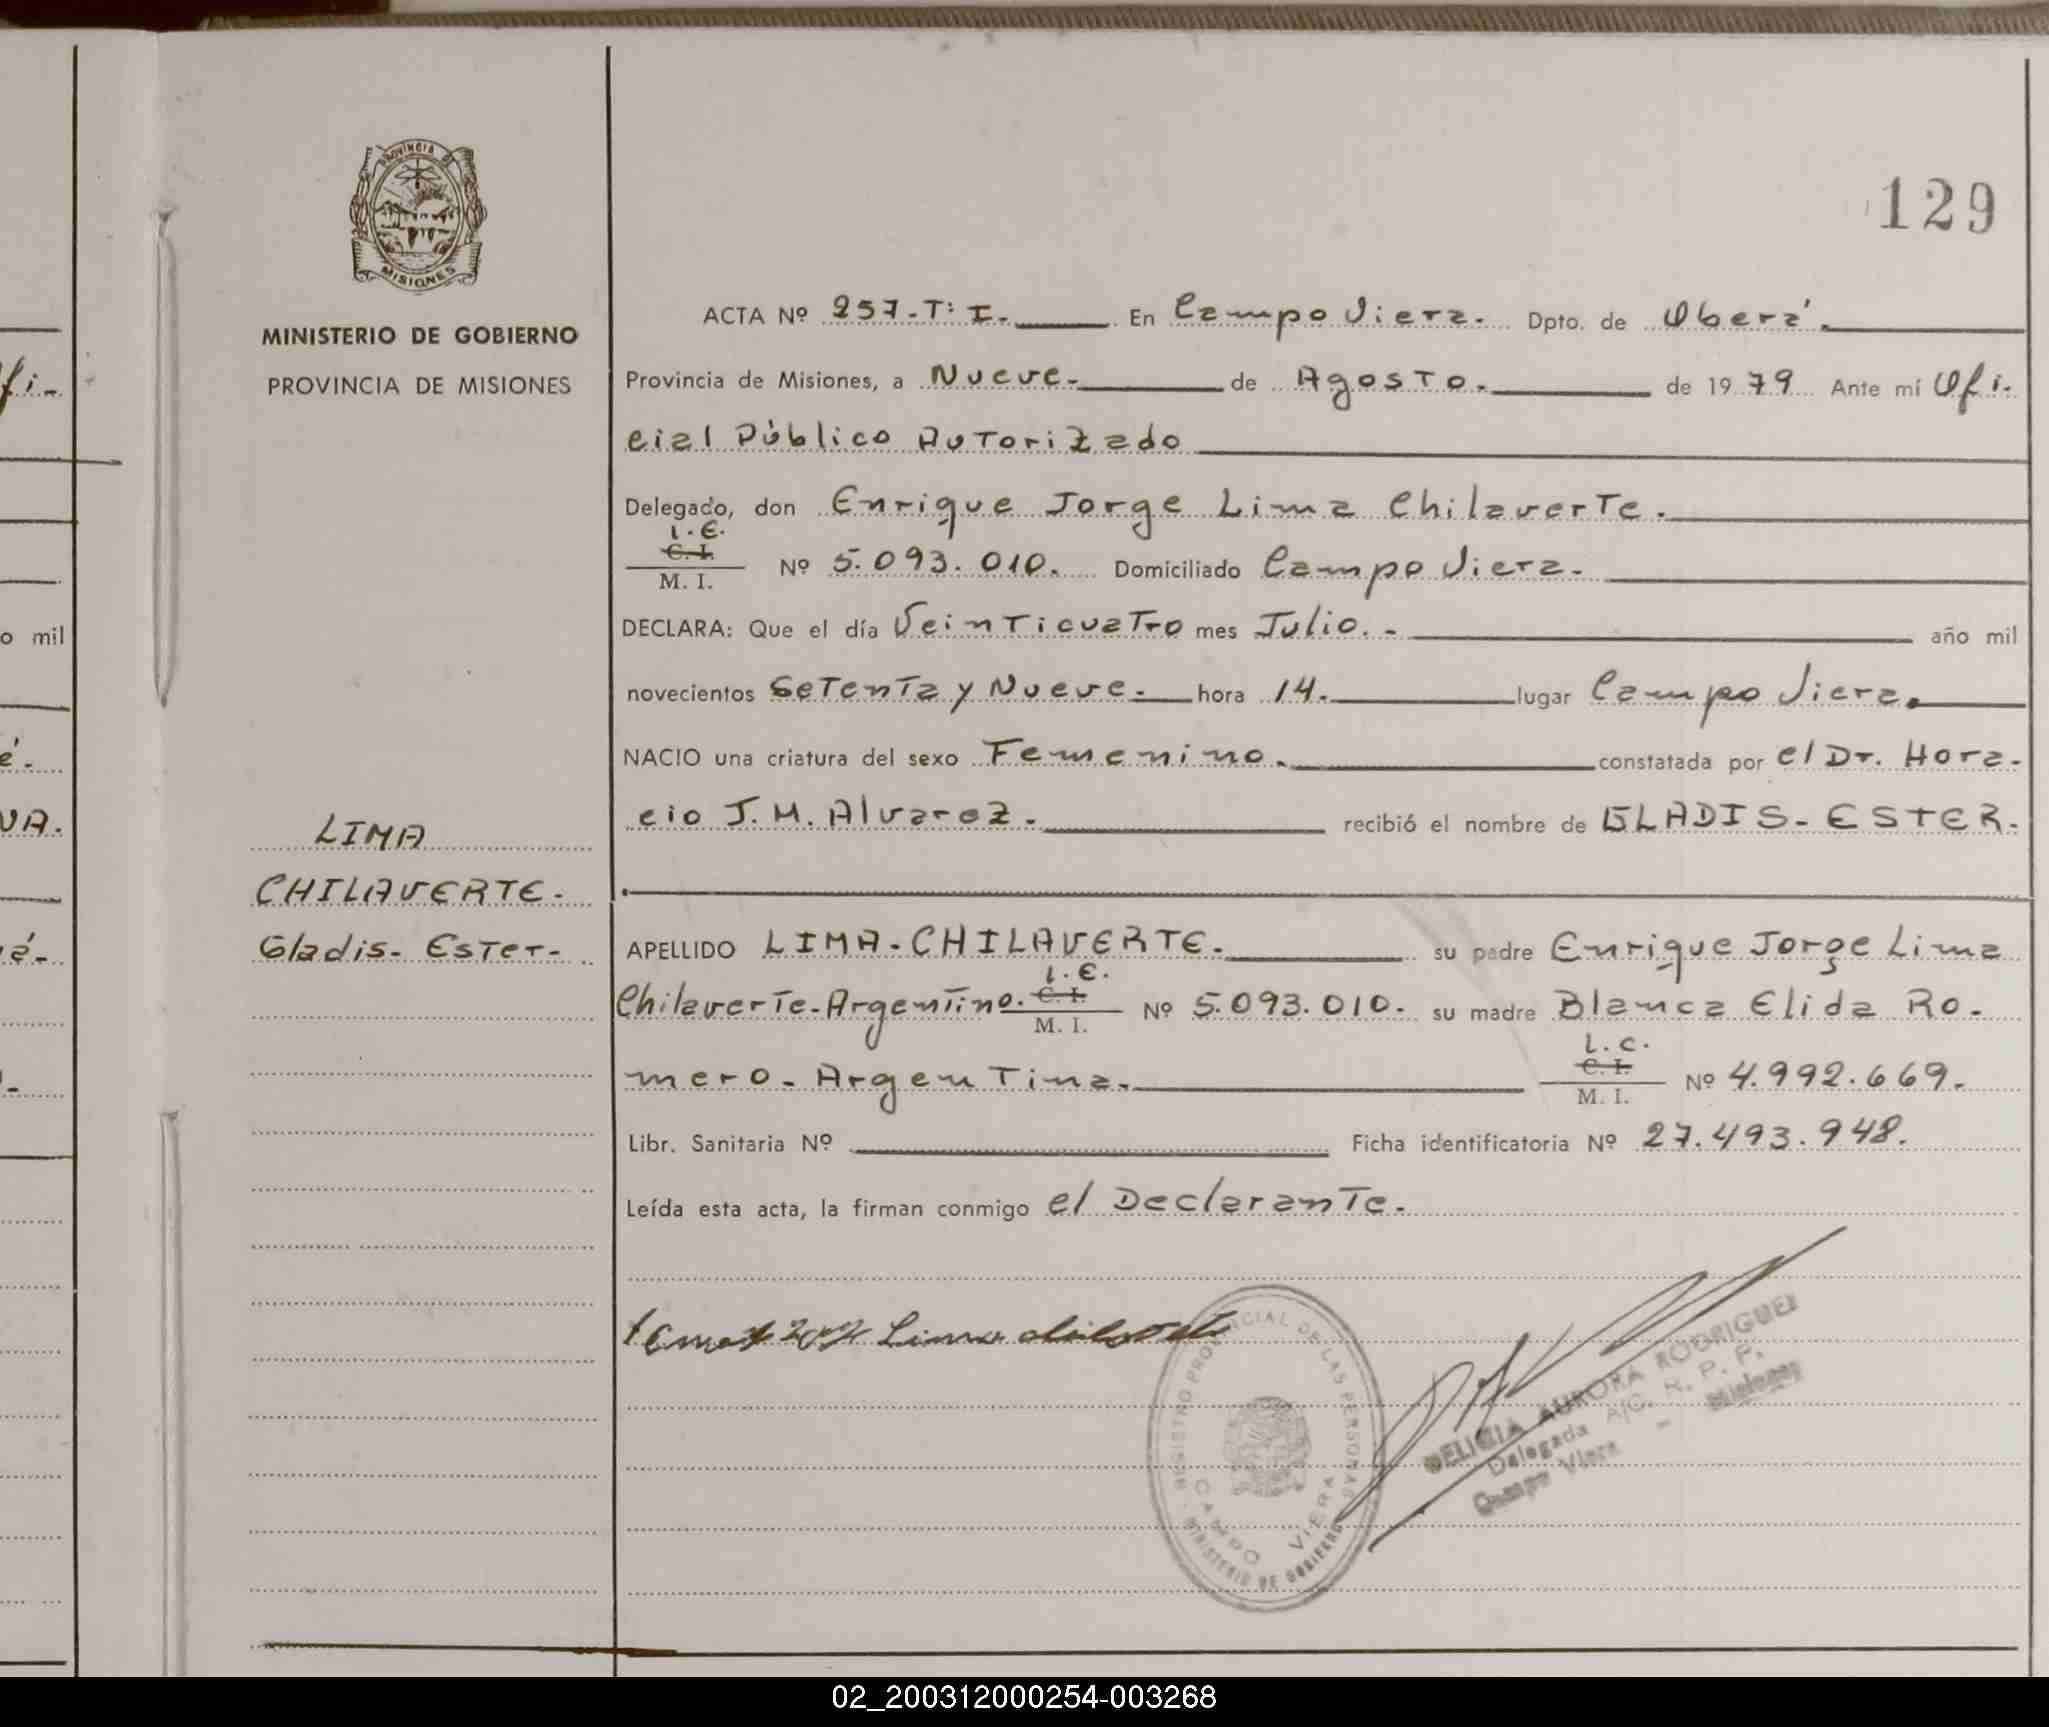 PROVINCIA DE
MISIONES
MINISTERIO DE GOBIERNO
PROVINCIA DE MISIONES
LIMA
CHILAVERTE.
Gladis- Ester-
129
ACTA Nº 257-T: I. En Campo Viera. Dpto. de Oberá.
Provincia de Misiones, a Nueve. de Agosto. de 1979 Ante mí Ofi.
cial Público Autorizado
Delegado, don Enrique Jorge Lima Chilaverte.
L.E.
C. I.
M. I. Nº 5.093.010. Domiciliado Campo Viera.
DECLARA: Que el día Veinticuatro mes Julio.- año mil
novecientos Setenta y Nueve. hora 14. lugar Campo Viera.
NACIO una criatura del sexo Femenino. constatada por el Dr. Hora-
cio J.M. Alvarez. recibió el nombre de GLADIS- ESTER.
APELLIDO LIMA-CHILAVERTE. su padre Enrique Jorge Lima
L.E.
Chilaverte-Argentino. C. I. Nº 5.093.010. su madre Blanca Elida Ro-
M. I.
L.C.
mero- Argentina. C. I. Nº 4.992.669.
M. I.
Libr. Sanitaria Nº Ficha identificatoria Nº 27.493.948.
Leída esta acta, la firman conmigo el Declarante.
Lima
REGISTRO PROVINCIAL DE LAS PERSONAS
CAMPO VIERA
MINISTERIO DE GOBIERNO
DELICIA AURORA RODRIGUEZ
Delegada A/C. R. P. P.
Campo Viera - Misiones
fi.
o mil
é.
VA.
á-
02_200312000254-003268